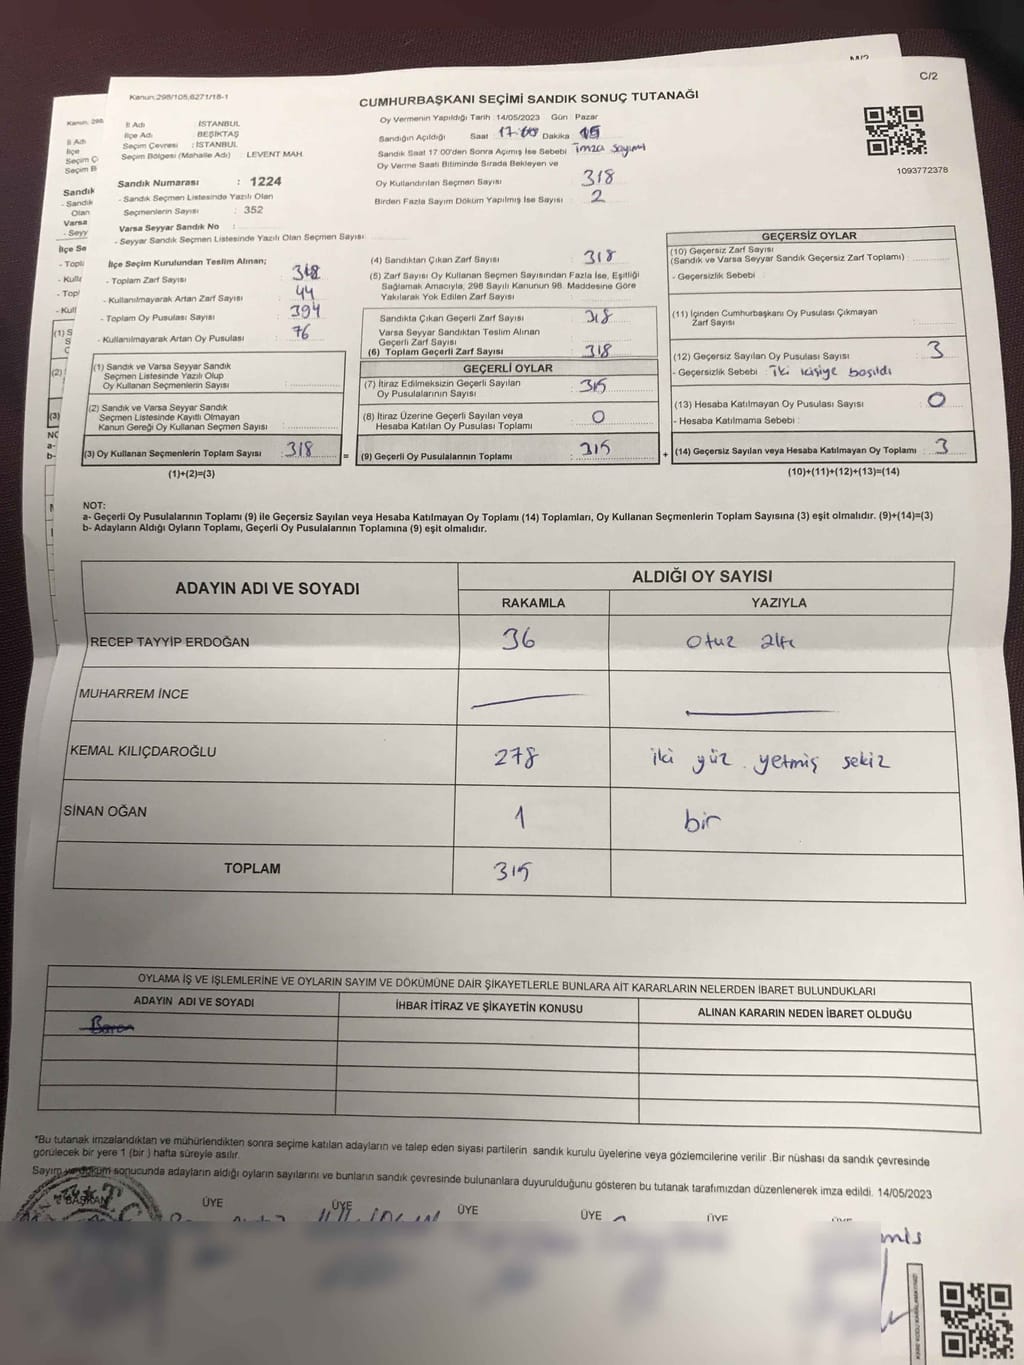 C/2
Kanun.298/105,6271/18-1
CUMHURBAŞKANI SEÇİMİ SANDIK SONUÇ TUTANAĞI
1093772378
İl Adı : İSTANBUL
İlçe Adı : BEŞİKTAŞ
Seçim Çevresi : İSTANBUL
Seçim Bölgesi (Mahalle Adı) : LEVENT MAH.
Sandık Numarası : 1224
- Sandık Seçmen Listesinde Yazılı Olan
Seçmenlerin Sayısı : 352
Varsa Seyyar Sandık No :
- Seyyar Sandık Seçmen Listesinde Yazılı Olan Seçmen Sayısı
Oy Vermenin Yapıldığı Tarih : 14/05/2023 Gün : Pazar
Sandığın Açıldığı Saat 17:00 Dakika 15
Sandık Saat 17:00'den Sonra Açımış İse Sebebi imza sayımı
Oy Verme Saati Bitiminde Sırada Bekleyen ve
Oy Kullandırılan Seçmen Sayısı 318
Birden Fazla Sayım Döküm Yapılmış İse Sayısı : 2
İlçe Seçim Kurulundan Teslim Alınan;
- Toplam Zarf Sayısı
- Kullanılmayarak Artan Zarf Sayısı 44
- Toplam Oy Pusulası Sayısı 394
- Kullanılmayarak Artan Oy Pusulası 76
(1) Sandık ve Varsa Seyyar Sandık
Seçmen Listesinde Yazılı Olup
Oy Kullanan Seçmenlerin Sayısı :
(2) Sandık ve Varsa Seyyar Sandık
Seçmen Listesinde Kayıtlı Olmayan
Kanun Gereği Oy Kullanan Seçmen Sayısı :
(3) Oy Kullanan Seçmenlerin Toplam Sayısı : 318 =
(1)+(2)=(3)
(4) Sandıktan Çıkan Zarf Sayısı : 318
(5) Zarf Sayısı Oy Kullanan Seçmen Sayısından Fazla İse, Eşitliği
Sağlamak Amacıyla, 298 Sayılı Kanunun 98. Maddesine Göre
Yakılarak Yok Edilen Zarf Sayısı :
Sandıkta Çıkan Geçerli Zarf Sayısı : 318
Varsa Seyyar Sandıktan Teslim Alınan
Geçerli Zarf Sayısı :
(6) Toplam Geçerli Zarf Sayısı : 318
GEÇERLİ OYLAR
(7) İtiraz Edilmeksizin Geçerli Sayılan
Oy Pusulalarının Sayısı : 315
(8) İtiraz Üzerine Geçerli Sayılan veya
Hesaba Katılan Oy Pusulası Toplamı : 0
(9) Geçerli Oy Pusulalarının Toplamı : 315 +
GEÇERSİZ OYLAR
(10) Geçersiz Zarf Sayısı
(Sandık ve Varsa Seyyar Sandık Geçersiz Zarf Toplamı) :
- Geçersizlik Sebebi :
(11) İçinden Cumhurbaşkanı Oy Pusulası Çıkmayan
Zarf Sayısı :
(12) Geçersiz Sayılan Oy Pusulası Sayısı : 3
- Geçersizlik Sebebi : iki kişiye basıldı
(13) Hesaba Katılmayan Oy Pusulası Sayısı : 0
- Hesaba Katılmama Sebebi :
(14) Geçersiz Sayılan veya Hesaba Katılmayan Oy Toplamı : 3
(10)+(11)+(12)+(13)=(14)
NOT:
a- Geçerli Oy Pusulalarının Toplamı (9) ile Geçersiz Sayılan veya Hesaba Katılmayan Oy Toplamı (14) Toplamları, Oy Kullanan Seçmenlerin Toplam Sayısına (3) eşit olmalıdır. (9)+(14)=(3)
b- Adayların Aldığı Oyların Toplamı, Geçerli Oy Pusulalarının Toplamına (9) eşit olmalıdır.
ADAYIN ADI VE SOYADI ALDIĞI OY SAYISI
RAKAMLA YAZIYLA
RECEP TAYYİP ERDOĞAN 36 otuz altı
MUHARREM İNCE
KEMAL KILIÇDAROĞLU 278 iki yüz yetmiş sekiz
SİNAN OĞAN 1 bir
TOPLAM 315
OYLAMA İŞ VE İŞLEMLERİNE VE OYLARIN SAYIM VE DÖKÜMÜNE DAİR ŞİKAYETLERLE BUNLARA AİT KARARLARIN NELERDEN İBARET BULUNDUKLARI
ADAYIN ADI VE SOYADI İHBAR İTİRAZ VE ŞİKAYETİN KONUSU ALINAN KARARIN NEDEN İBARET OLDUĞU
*Bu tutanak imzalandıktan ve mühürlendikten sonra seçime katılan adayların ve talep eden siyasi partilerin sandık kurulu üyelerine veya gözlemcilerine verilir .Bir nüshası da sandık çevresinde
görülecek bir yere 1 (bir ) hafta süreyle asılır.
Sayım ve döküm sonucunda adayların aldığı oyların sayılarını ve bunların sandık çevresinde bulunanlara duyurulduğunu gösteren bu tutanak tarafımızdan düzenlenerek imza edildi. 14/05/2023
BAŞKAN ÜYE ÜYE ÜYE ÜYE ÜYE ÜYE